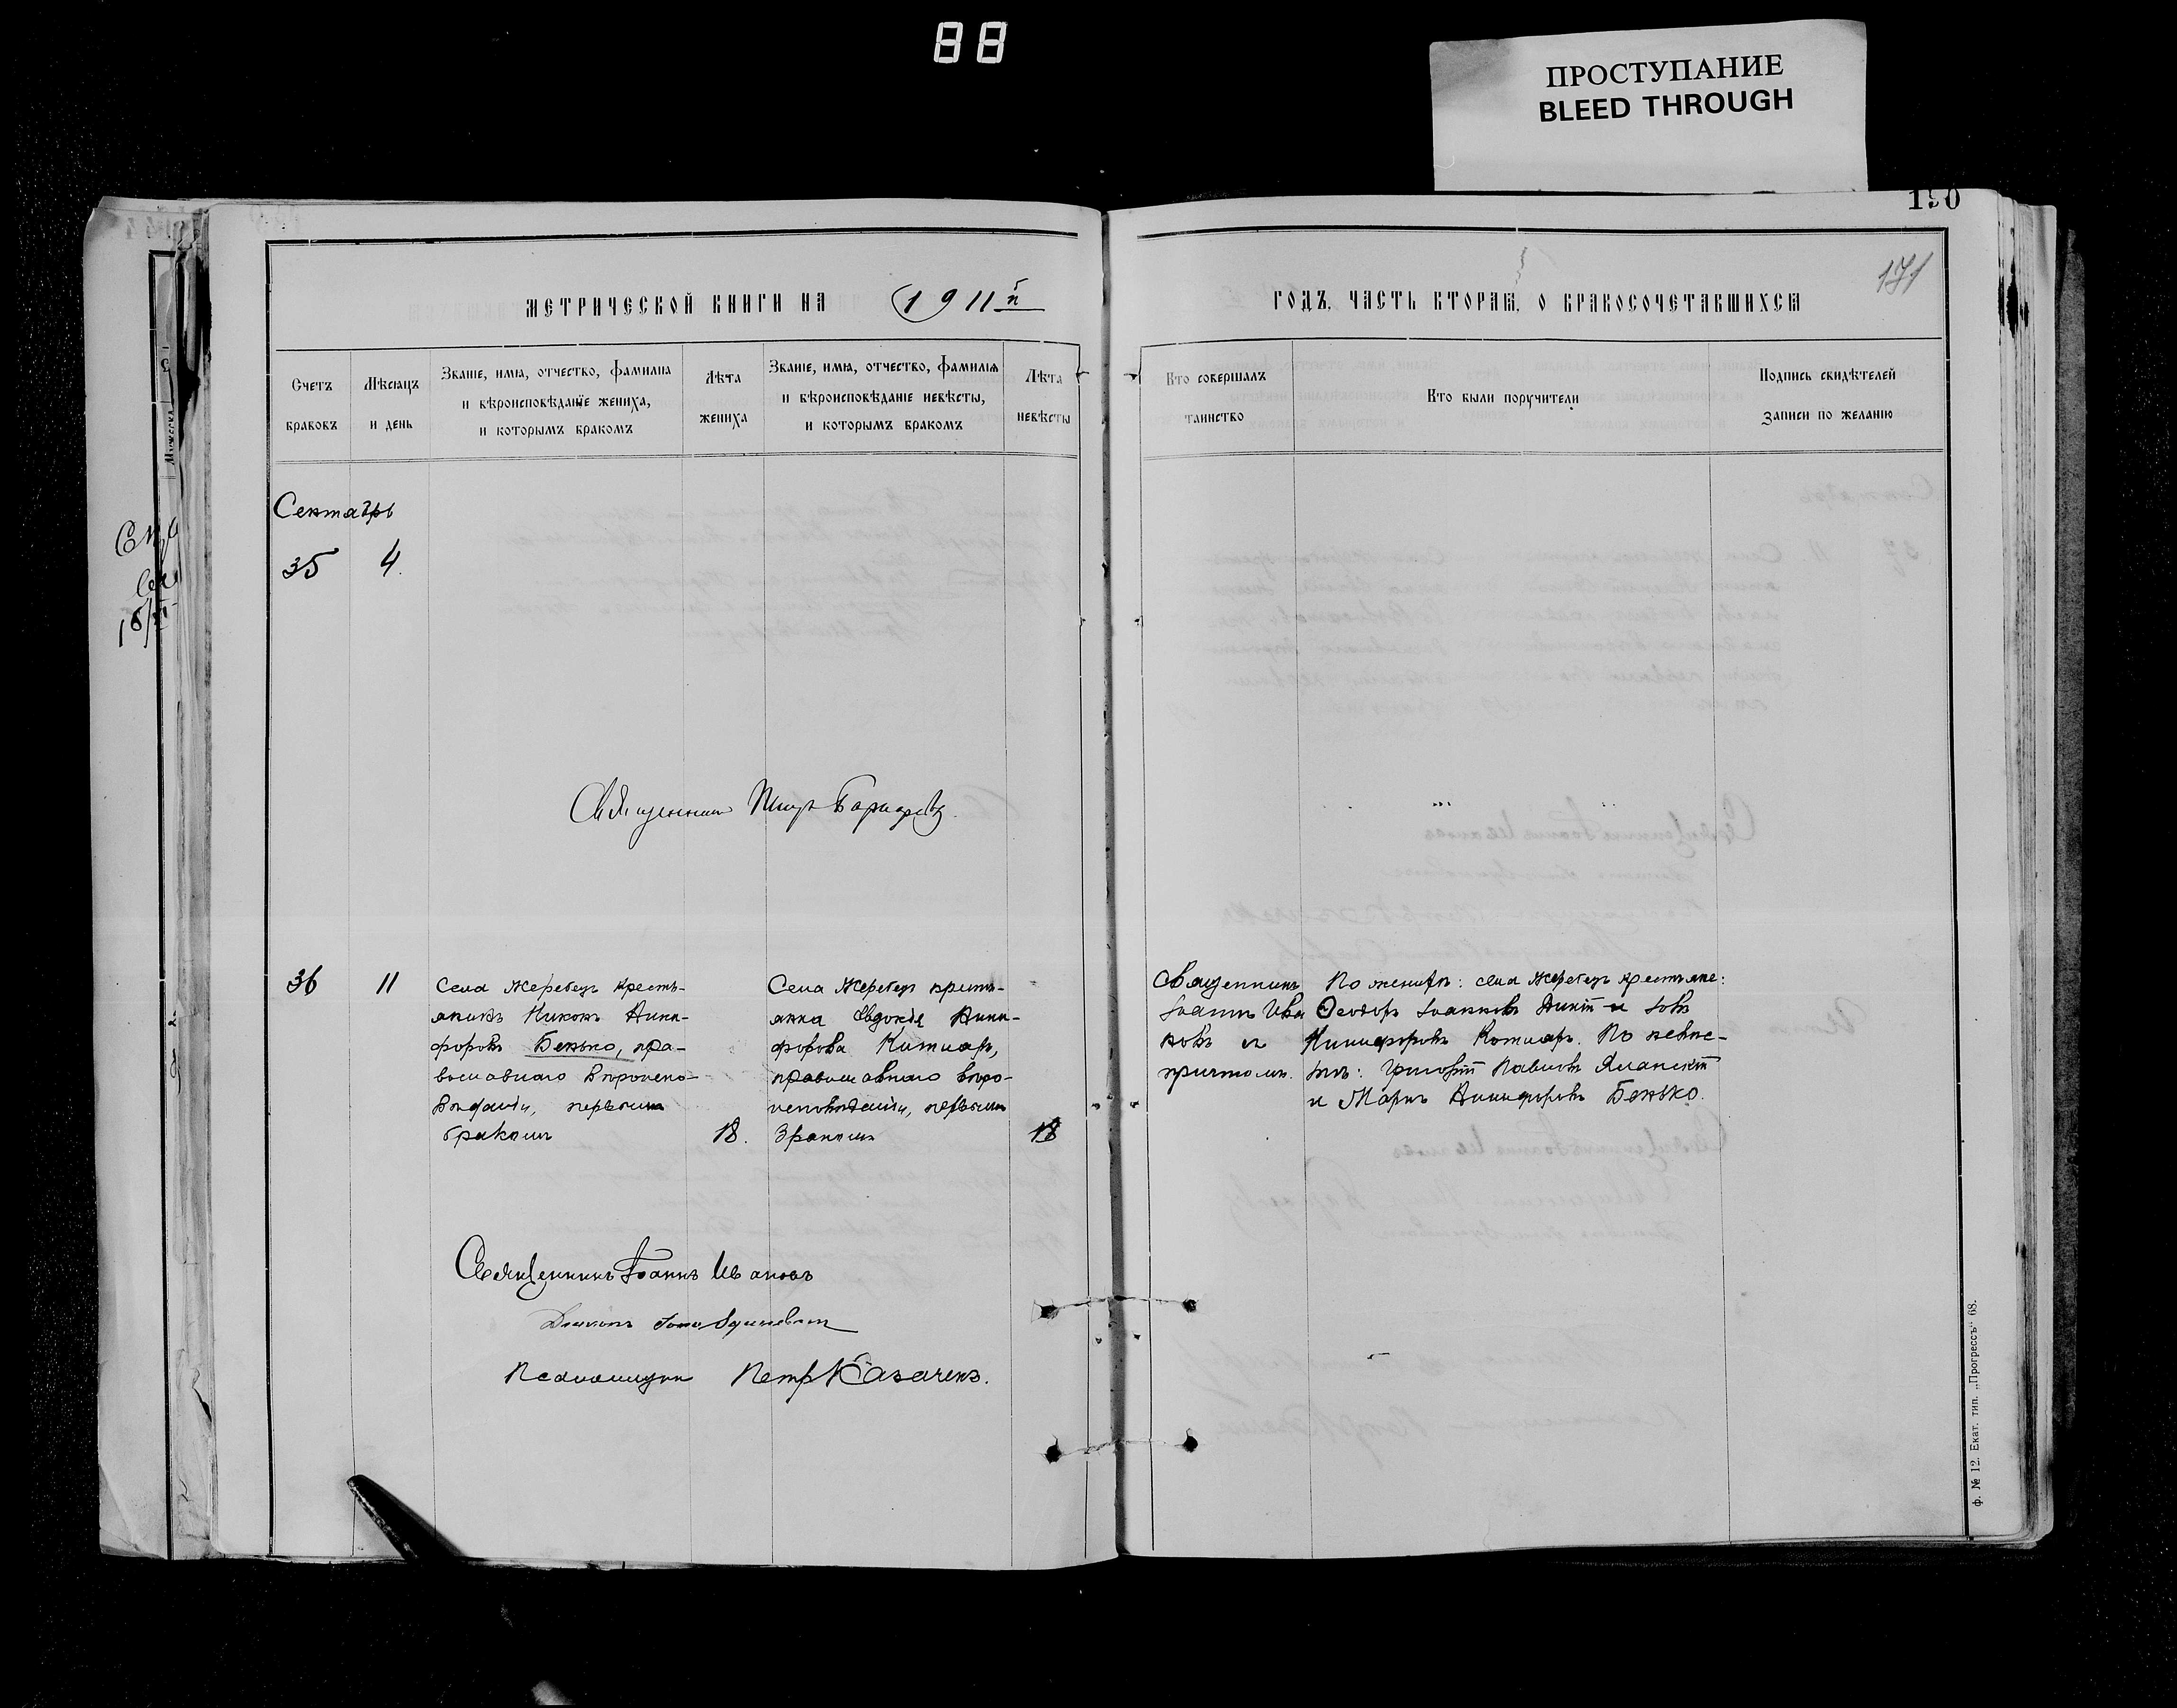 88
ПРОСТУПАНИЕ
BLEED THROUGH
190
171
МЕТРИЧЕСКОЙ КНИГИ НА 1911й
ГОДЪ, ЧАСТЬ ВТОРАЯ, О БРАКОСОЧЕТАВШИХСЯ
Счетъ браковъ
Мѣсяцъ и день
Званіе, имя, отчество, фамилія
и вѣроисповѣданіе жениха,
и которымъ бракомъ
Лѣта жениха
Званіе, имя, отчество, фамилія
и вѣроисповѣданіе невѣсты,
и которымъ бракомъ
Лѣта невѣсты
Кто совершалъ
таинство
Кто были поручители
Подпись свидѣтелей
записи по желанію
Сентябрь
35 4.
Священникъ
36 11
Села Жеребецъ кресть-
янинъ Никонъ Ники-
форовъ Бенько, пра-
вославнаго вѣроиспо-
вѣданія, первымъ
бракомъ
18.
Села Жеребецъ кресть-
янка Евдокія Ники-
форова Котляръ,
православнаго вѣро-
исповѣданія, первымъ
бракомъ
18
Священникъ
Іоаннъ Ива
новъ съ
причтомъ.
По женихѣ: села Жеребецъ крестьяне:
Ѳеодоръ Іоанновъ и Іовъ
Никифоровъ Котляръ. По невѣс-
тѣ: Григорій Павловъ
и Маркъ Никифоровъ Бенько.
Священникъ Іоаннъ Ивановъ
Діаконъ
Псаломщикъ Петръ Казачекъ.
ф. № 12. Екат. тип. „Прогрессъ“ 68.